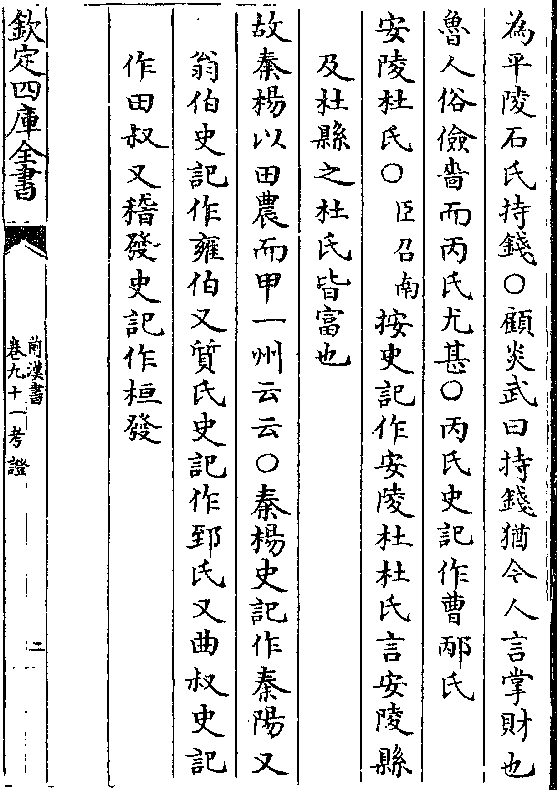 為平陵石氏持錢○顧炎武曰持錢猶今人言掌財也
魯人俗儉嗇而丙氏尤甚○丙氏史記作曹邴氏
安陵杜氏○臣召南按史記作安陵杜杜氏言安陵縣
及杜縣之杜氏皆富也
故秦楊以田農而甲一州云云○秦楊史記作秦陽又
翁伯史記作雍伯又質氏史記作郅氏又曲叔史記
作田叔又稽發史記作桓發
欽定四庫全書
前漢書
卷九十一考證
二